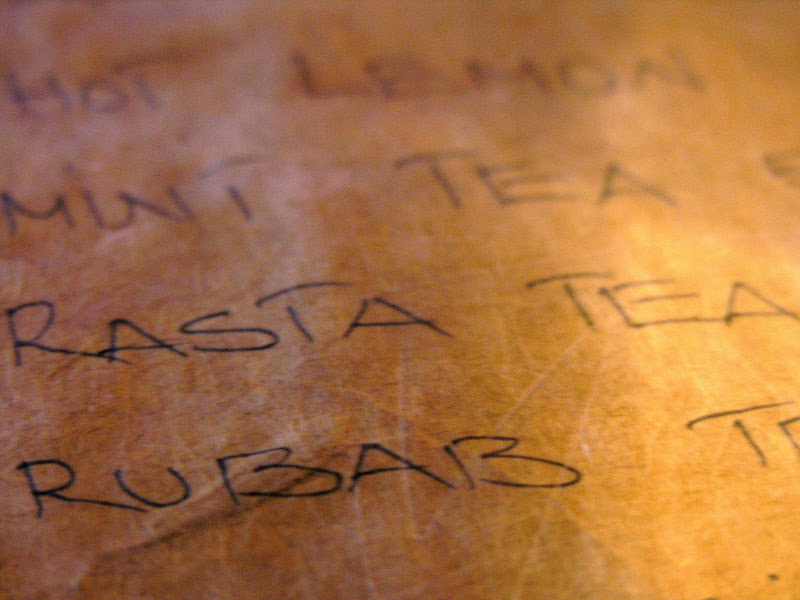 HOT LEMON
MINT TEA
RASTA TEA
RUBAB